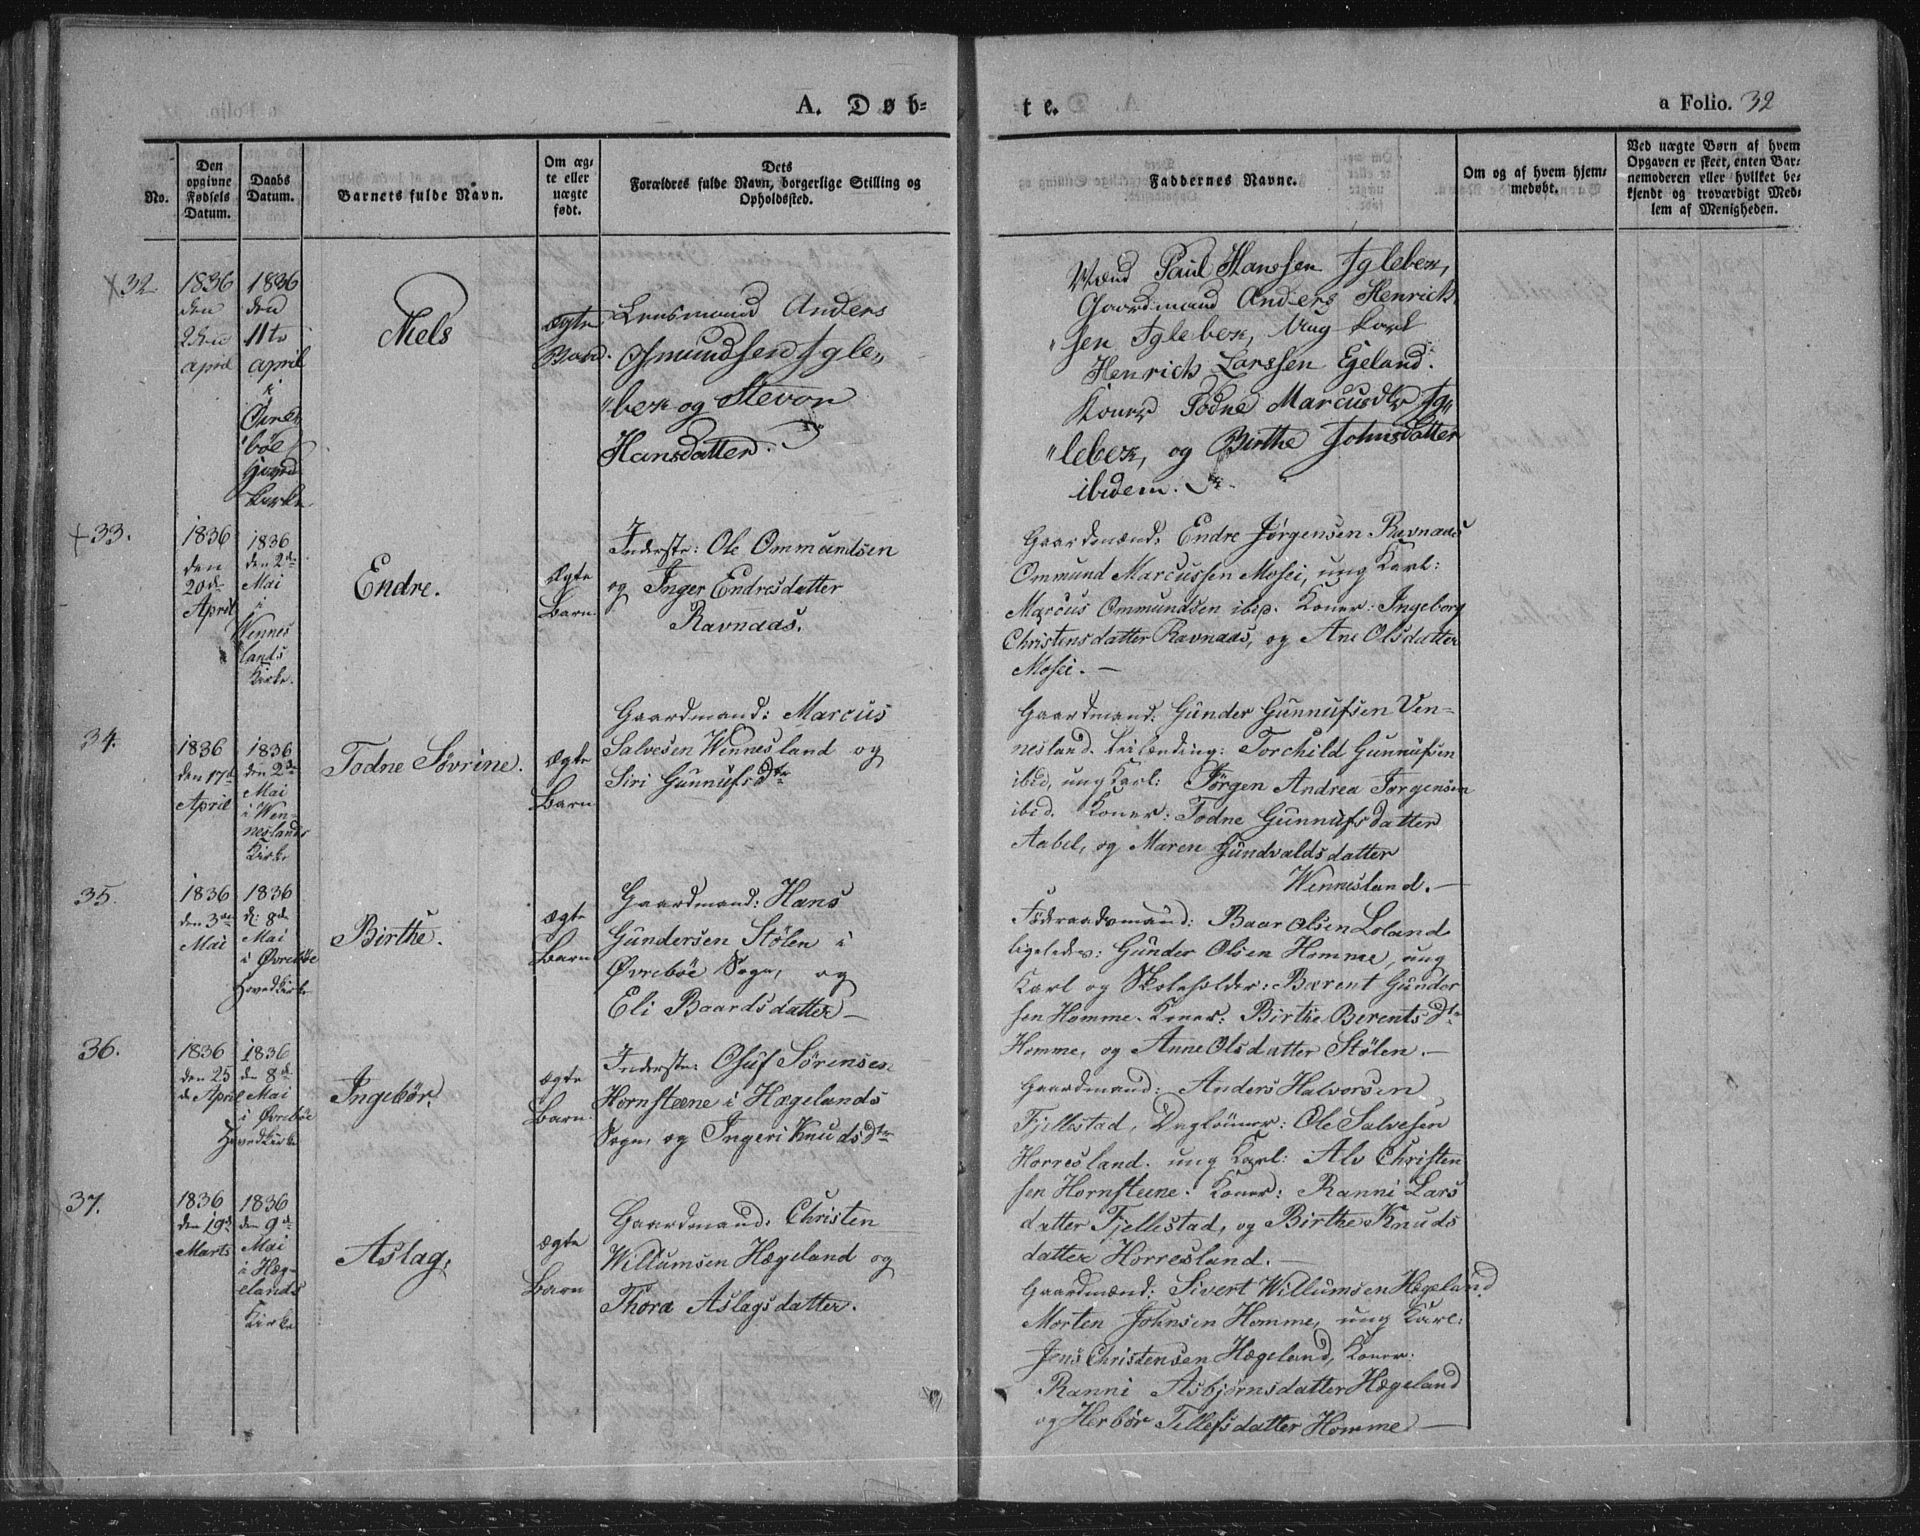 A. Døb-
te.
a Folio. 32
No.
Den opgivne Fødsels Datum.
Daabs Datum.
Barnets fulde Navn.
Om ægte eller uægte født.
Dets
Forældres fulde Navn, borgerlige Stilling og
Opholdssted.
Faddernes Navne.
Om og af hvem hjem-
medøbt.
Ved uægte Børn af hvem
Opgaven er skeet, enten Bar-
nemoderen eller hvilket be-
kjendt og troværdigt Med-
lem af Menigheden.
32
1836
den
april
1836
den
11te
april
i
Øvre-
bøe
Hovd
Kirke
Niels
ægte
Barn.
Lensmand Anders
Osmundsen Igle„
„bek og Stevon
Hansdatter.
Paul Hanssen Iglebek,
Gaardmand Anders Henrich
„sen Iglebek, Ung Karl
Henrich Larssen Egeland.
Koner Todne Marcusdtr Ig„
„lebek, og Birthe Johnsdatter
ibidem.
+33.
1836
den
20de
April
1836
den 2de
Mai
i
Wennes
lands
Kirke.
Endre.
Ægte
Barn.
Inderste: Ole Ommundsen
og Inger Endresdatter
Ravnaas.
Gaardmænd: Endre Jørgensen Ravnaas
Ommund Marcussen Mosei, ung Karl:
Marcus Ommundsen ibid. Koner: Ingeborg
Christensdatter Ravnaas, og Ane Olsdatter
Mosei. —
34.
1836
den 17de
April
1836
den 2de
Mai
i Wen-
neslands
Kirke
Todne Sövrine.
Ægte
Barn
Gaardmand: Marcus
Salvesen Wennesland og
Siri Gunnufsdtr
Gaardmand: Gunder Gunnufsen Ven-
nesland. Leilænding: Torchild Gunnufsen
ibid, ung Karl: Jörgen Andrea Jorgensen
ibid. Koner: Todne Gunnufsdatter
Aabel, og Maren Gundvaldsdatter
Wennesland. —
35.
1836
den 3de
Mai
1836
d: 8de
Mai
i Øvrebøe
Hovedkirke
Birthe.
ægte
Barn
Gaardmand: Hans
Gundersen Stölen i
Øvrebøe Sogn, og
Eli Baardsdatter —
Föderaadsmand: Baar Olsen Loland
ligeledes: Gunder Olsen Homme, ung
Karl og Skoleholder: Bærent Gunder
sen Homme. Koner: Birthe Berentsdtr
Homme, og Anne Olsdatter Stölen. —
36.
1836
den 25
de April
1836
den 8de
Mai
i Øvrebøe
Hovedkirke
Ingebør.
ægte
Barn.
Inderste: Osuf Sørensen
Hornsteene i Hægelands
Sogn, og Ingeri Knudsdtr
Gaardmand: Anders Halvorsen
Fjellestad, Daglönner: Ole Salvesen
Horresland. ung Karl: Alv Christen
sen Hornsteene. Koner: Ranni Lars
datter Fjellestad, og Birthe Knuds
datter Horresland. —
37.
1836
den 19de
Marts
1836
den 9de
Mai
i Hæg-
elands
Kirke
Aslag.
ægte
Barn
Gaardmand: Christen
Willumsen Hægeland og
Thora Aslagsdatter.
Gaardmænd: Sivert Willumsen Hægeland
Morten Johnsen Homme, ung Karl:
Jens Christensen Hægeland, Koner:
Ranni Asbjørnsdatter Hægeland
og Herbör Tellefsdatter Homme —